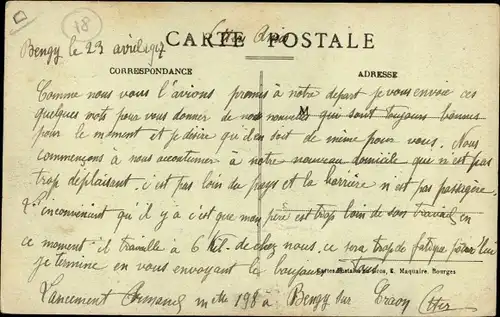 18
Bengy le 23 avril 1917
CARTE POSTALE
CORRESPONDANCE
ADRESSE
Comme nous vous l'avions promis à notre départ je vous envoie ces
quelques mots pour vous donner de nos nouvelles qui sont toujours bonnes
M
pour le moment et je désire qu'il en soit de même pour vous. Nous
commençons à nous accoutumer à notre nouveau domicile qui n'est pas
trop déplaisant. c'est pas loin du pays et la barrière n'est pas passagère.
L'inconvénient qu'il y à c'est que mon père est trop loin de son travail en
ce moment il travaille à 6 Kil. de chez nous. ce sera trop de fatigue pour lui
je termine en vous envoyant le bonjour
Cartes Postales en Gros, E. Maquaire, Bourges
Lancement Armand 198 à Bengy sur Craon Cher